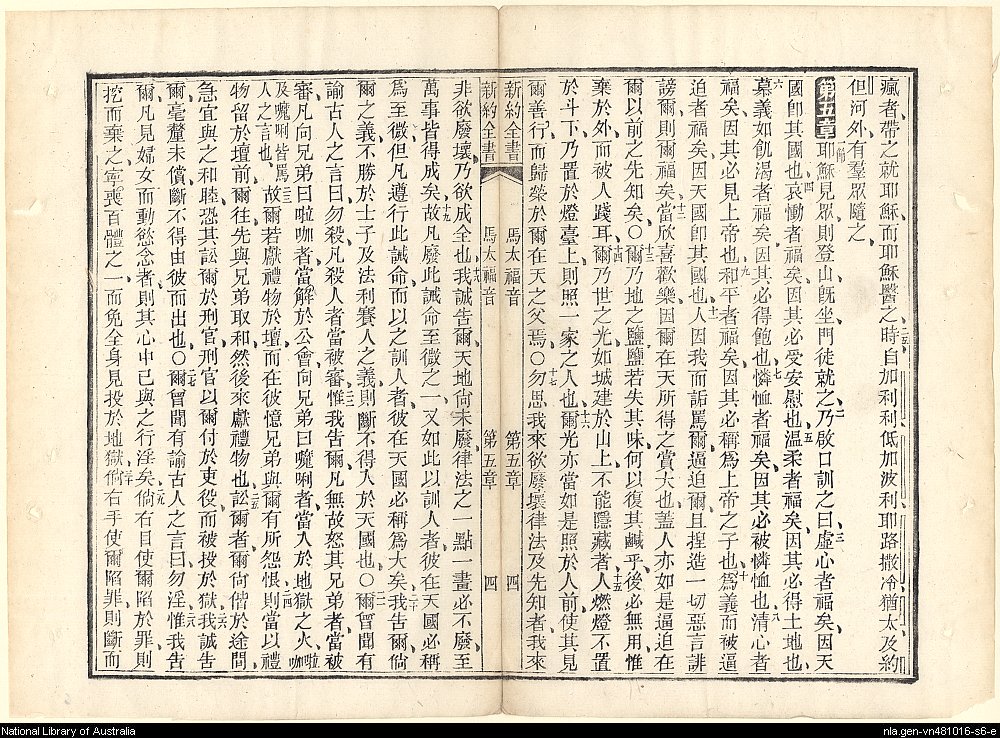 瘋者、帶之就耶穌、而耶穌醫之、二五時自加利利低加波利耶路撒冷猶太及約
但河外、有羣眾隨之、
第五章 一耶穌見眾、則登山、旣坐、門徒就之、二乃啟口訓之曰、三虛心者福矣、因天
國卽其國也、四哀慟者福矣、因其必受安慰也、五温柔者福矣、因其必得土地也、
六慕義如飢渴者福矣、因其必得飽也、七憐恤者福矣、因其必被憐恤也、八清心者
福矣、因其必見上帝也、九和平者福矣、因其必稱爲上帝之子也、十爲義而被逼
迫者福矣、因天國卽其國也、十一人因我而詬罵爾、逼迫爾、且捏造一切惡言誹
謗爾、則爾福矣、十二當欣喜歡樂、因爾在天所得之賞大也、蓋人亦如是逼迫在
爾以前之先知矣、〇十三爾乃地之鹽、鹽若失其味、何以復其鹹乎、後必無用、惟
棄於外、而被人踐耳、十四爾乃世之光、如城建於山上、不能隱藏者、十五人燃燈不置
於斗下、乃置於燈臺上、則照一家之人也、十六爾光亦當如是照於人前、使其見
爾善行、而歸榮於爾在天之父焉、〇十七勿思我來欲廢壞律法及先知者、我來
新約全書 馬太福音 第五章 四
新約全書 馬太福音 第五章 四
非欲廢壞、乃欲成全也、十八我誠告爾、天地尙未廢、律法之一點一畫必不廢、至
萬事皆得成矣、十九故凡廢此誡命至微之一、又如此以訓人者、彼在天國必稱
爲至微、但凡遵行此誡命、而以之訓人者、彼在天國必稱爲大矣、二十我告爾、倘
爾之義不勝於士子及法利賽人之義、則斷不得入於天國也、〇二一爾曾聞有
諭古人之言曰、勿殺、凡殺人者當被審、二二惟我告爾、凡無故怒其兄弟者當被
審、凡向兄弟曰啦咖者、當解於公會、向兄弟曰嚰唎者、當入於地獄之火、啦咖
及嚰唎皆罵人之言也、二三故爾若獻禮物於壇、而在彼憶兄弟與爾有所怨恨、二四則當以禮
物留於壇前、爾往先與兄弟取和、然後來獻禮物也、二五訟爾者、爾尙偕於途間、
急宜與之和睦、恐其訟爾於刑官、刑官以爾付於吏役、而被投於獄、二六我誠告
爾、毫釐未償、斷不得由彼而出也、〇二七爾曾聞有諭古人之言曰、勿淫、二八惟我告
爾、凡見婦女而動慾念者、則其心中已與之行淫矣、二九倘右目使爾陷於罪、則
挖而棄之、寧喪百體之一、而免全身見投於地獄、三十倘右手使爾陷罪、則斷而
National Library of Australia
nla.gen-vn481016-s6-e